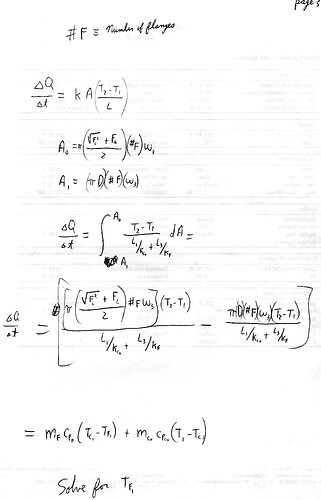 page 3
#F ≡ Number of flanges
ΔQ/Δt = k A (T₂-T₁/L)
A₀ = π(√F₁² + F₂/2)(#F)ω₃
A₁ = (πD)(#F)(ω₃)
ΔQ/Δt = ∫ A₀ A₁ T₂-T₁/L₁/K + L₃/K dA =
ΔQ/Δt = [π(√F₁² + F₂/2)#Fω₃](T₂-T₁)/L₁/K + L₃/K - π(D)(#F)ω₃(T₂-T₁)/L₁/K + L₃/K
= m_F C_P (T - T) + m C_P (T - T)
Solve for T_F₁